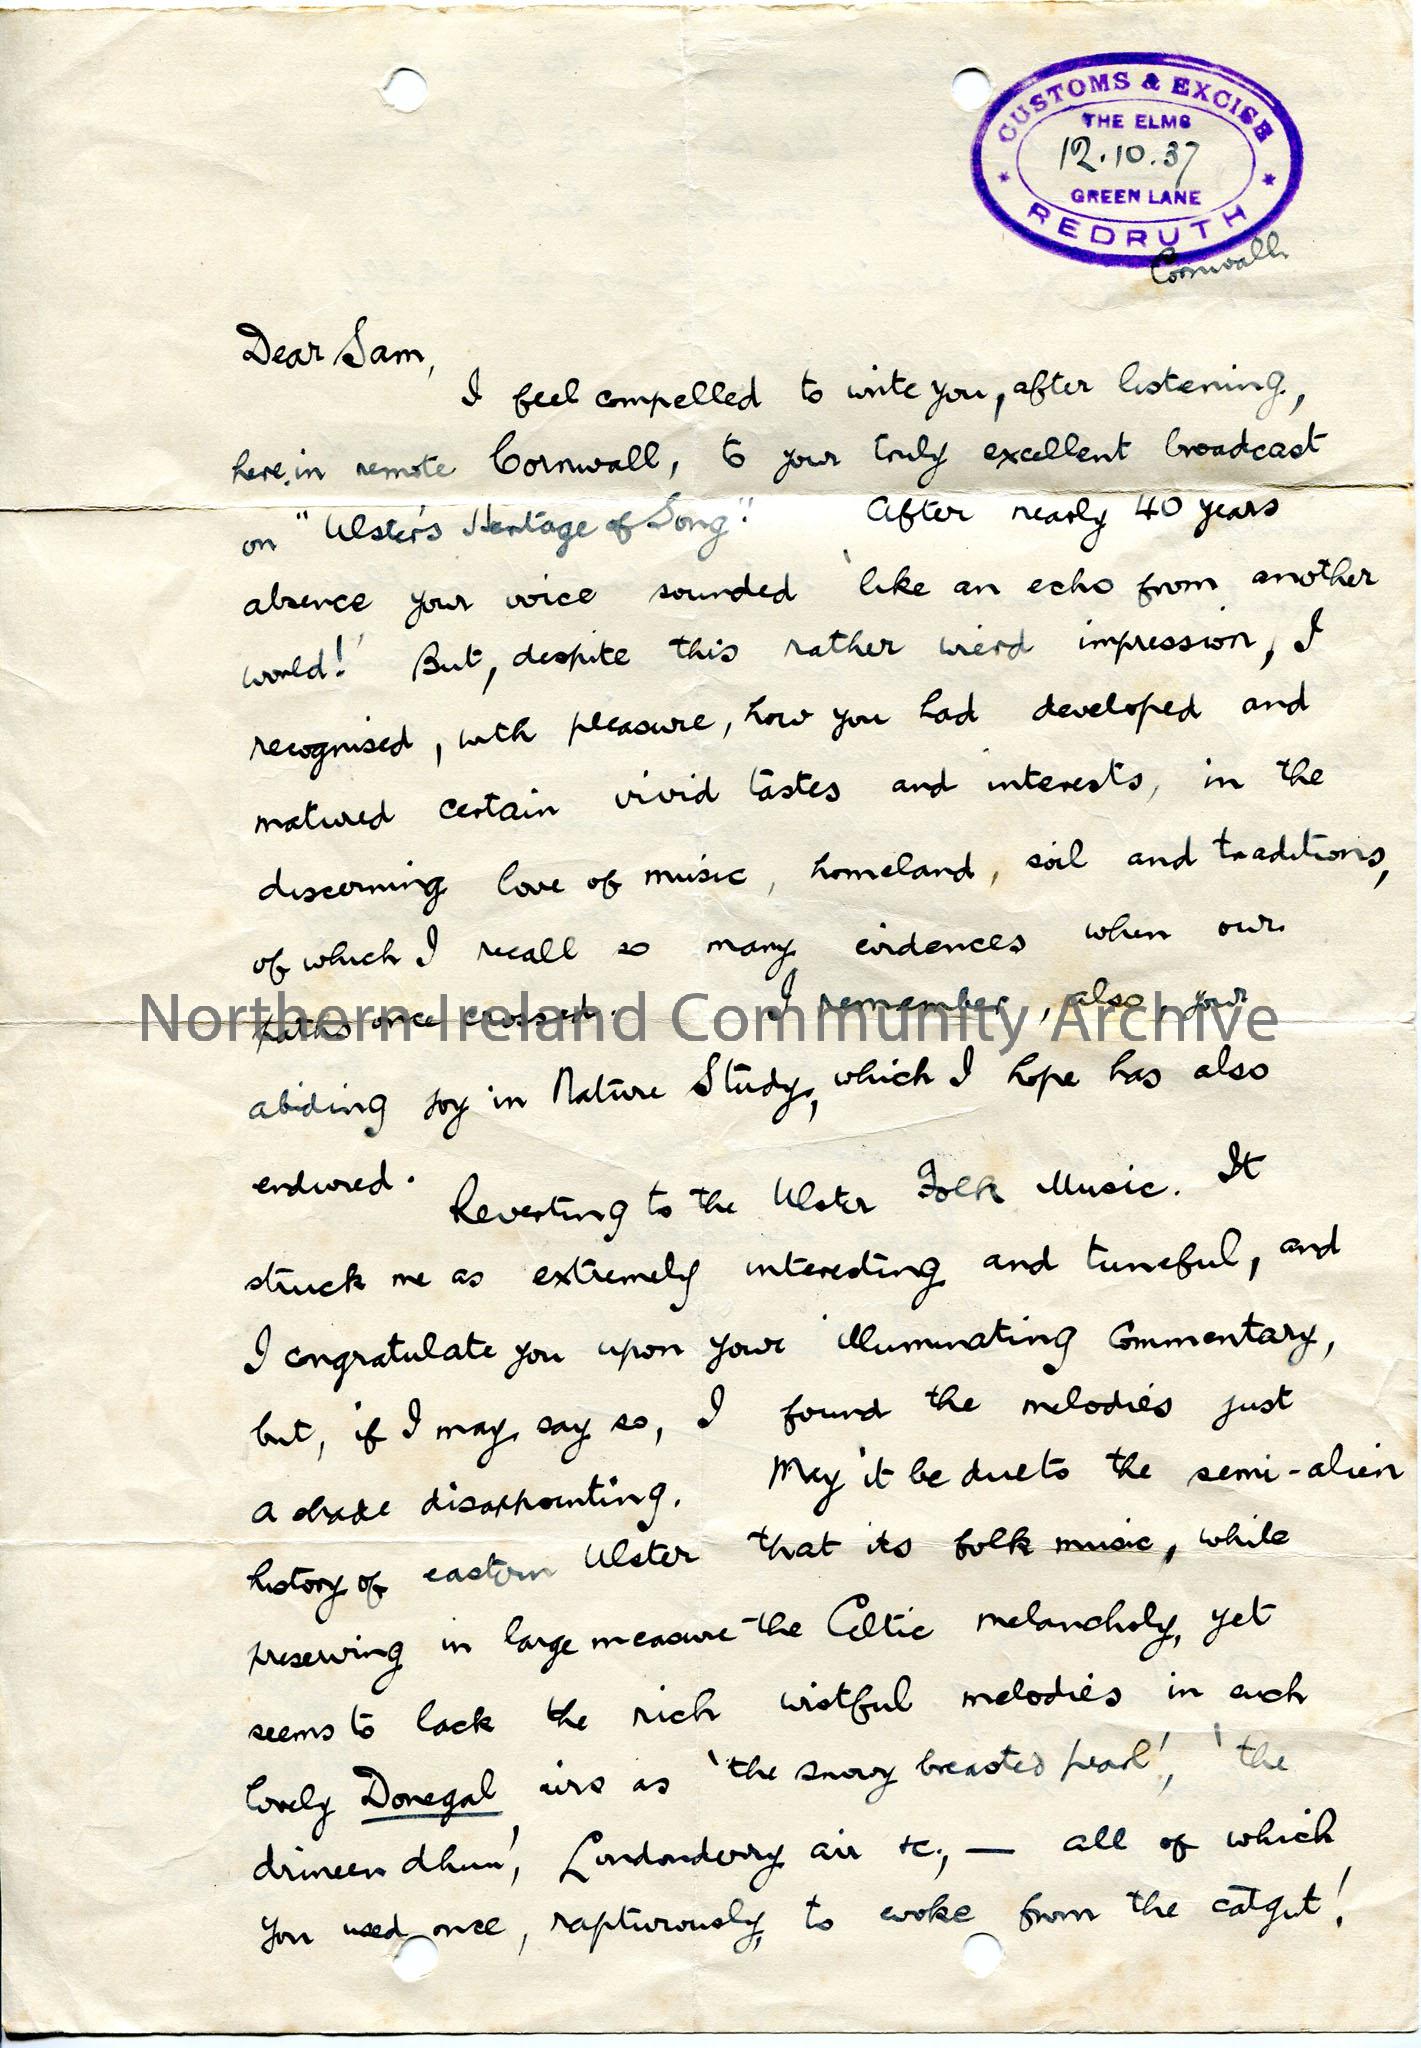 CUSTOMS & EXCISE
THE ELMS
12.10.37
GREEN LANE
REDRUTH
Cornwall.
Dear Sam,
I feel compelled to write you, after listening,
here, in remote Cornwall, to your truly excellent broadcast
on "Ulster's Heritage of Song". After nearly 40 years
absence your voice sounded 'like an echo from another
world!' But, despite this rather wierd impression, I
recognised, with pleasure, how you had developed and
matured certain vivid tastes and interests, in the
discerning love of music, homeland, soil and traditions,
of which I recall so many evidences when our
paths once crossed. I remember, also, your
Northern Ireland Community Archive
abiding joy in Nature Study, which I hope has also
endured.
Reverting to the Ulster Folk Music. It
struck me as extremely interesting and tuneful, and
I congratulate you upon your illuminating Commentary,
but, if I may say so, I found the melodies just
a shade disappointing. May it be due to the semi-alien
history of eastern Ulster that its folk music, while
preserving in large measure the Celtic melancholy, yet
seems to lack the rich wistful melodies in such
lovely Donegal airs as 'the snowy breasted pearl', 'the
drineen dhun', Londonderry air &c., — all of which
you used once, rapturously, to evoke from the catgut!